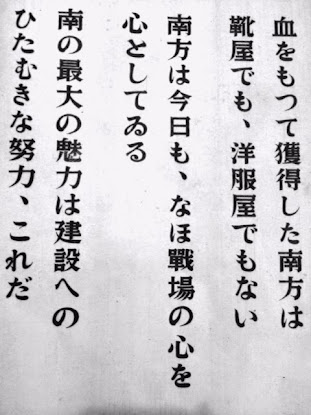 血をもつて獲得した南方は
靴屋でも、洋服屋でもない
南方は今日も、なほ戰場の心を
心としてゐる
南の最大の魅力は建設への
ひたむきな努力、これだ